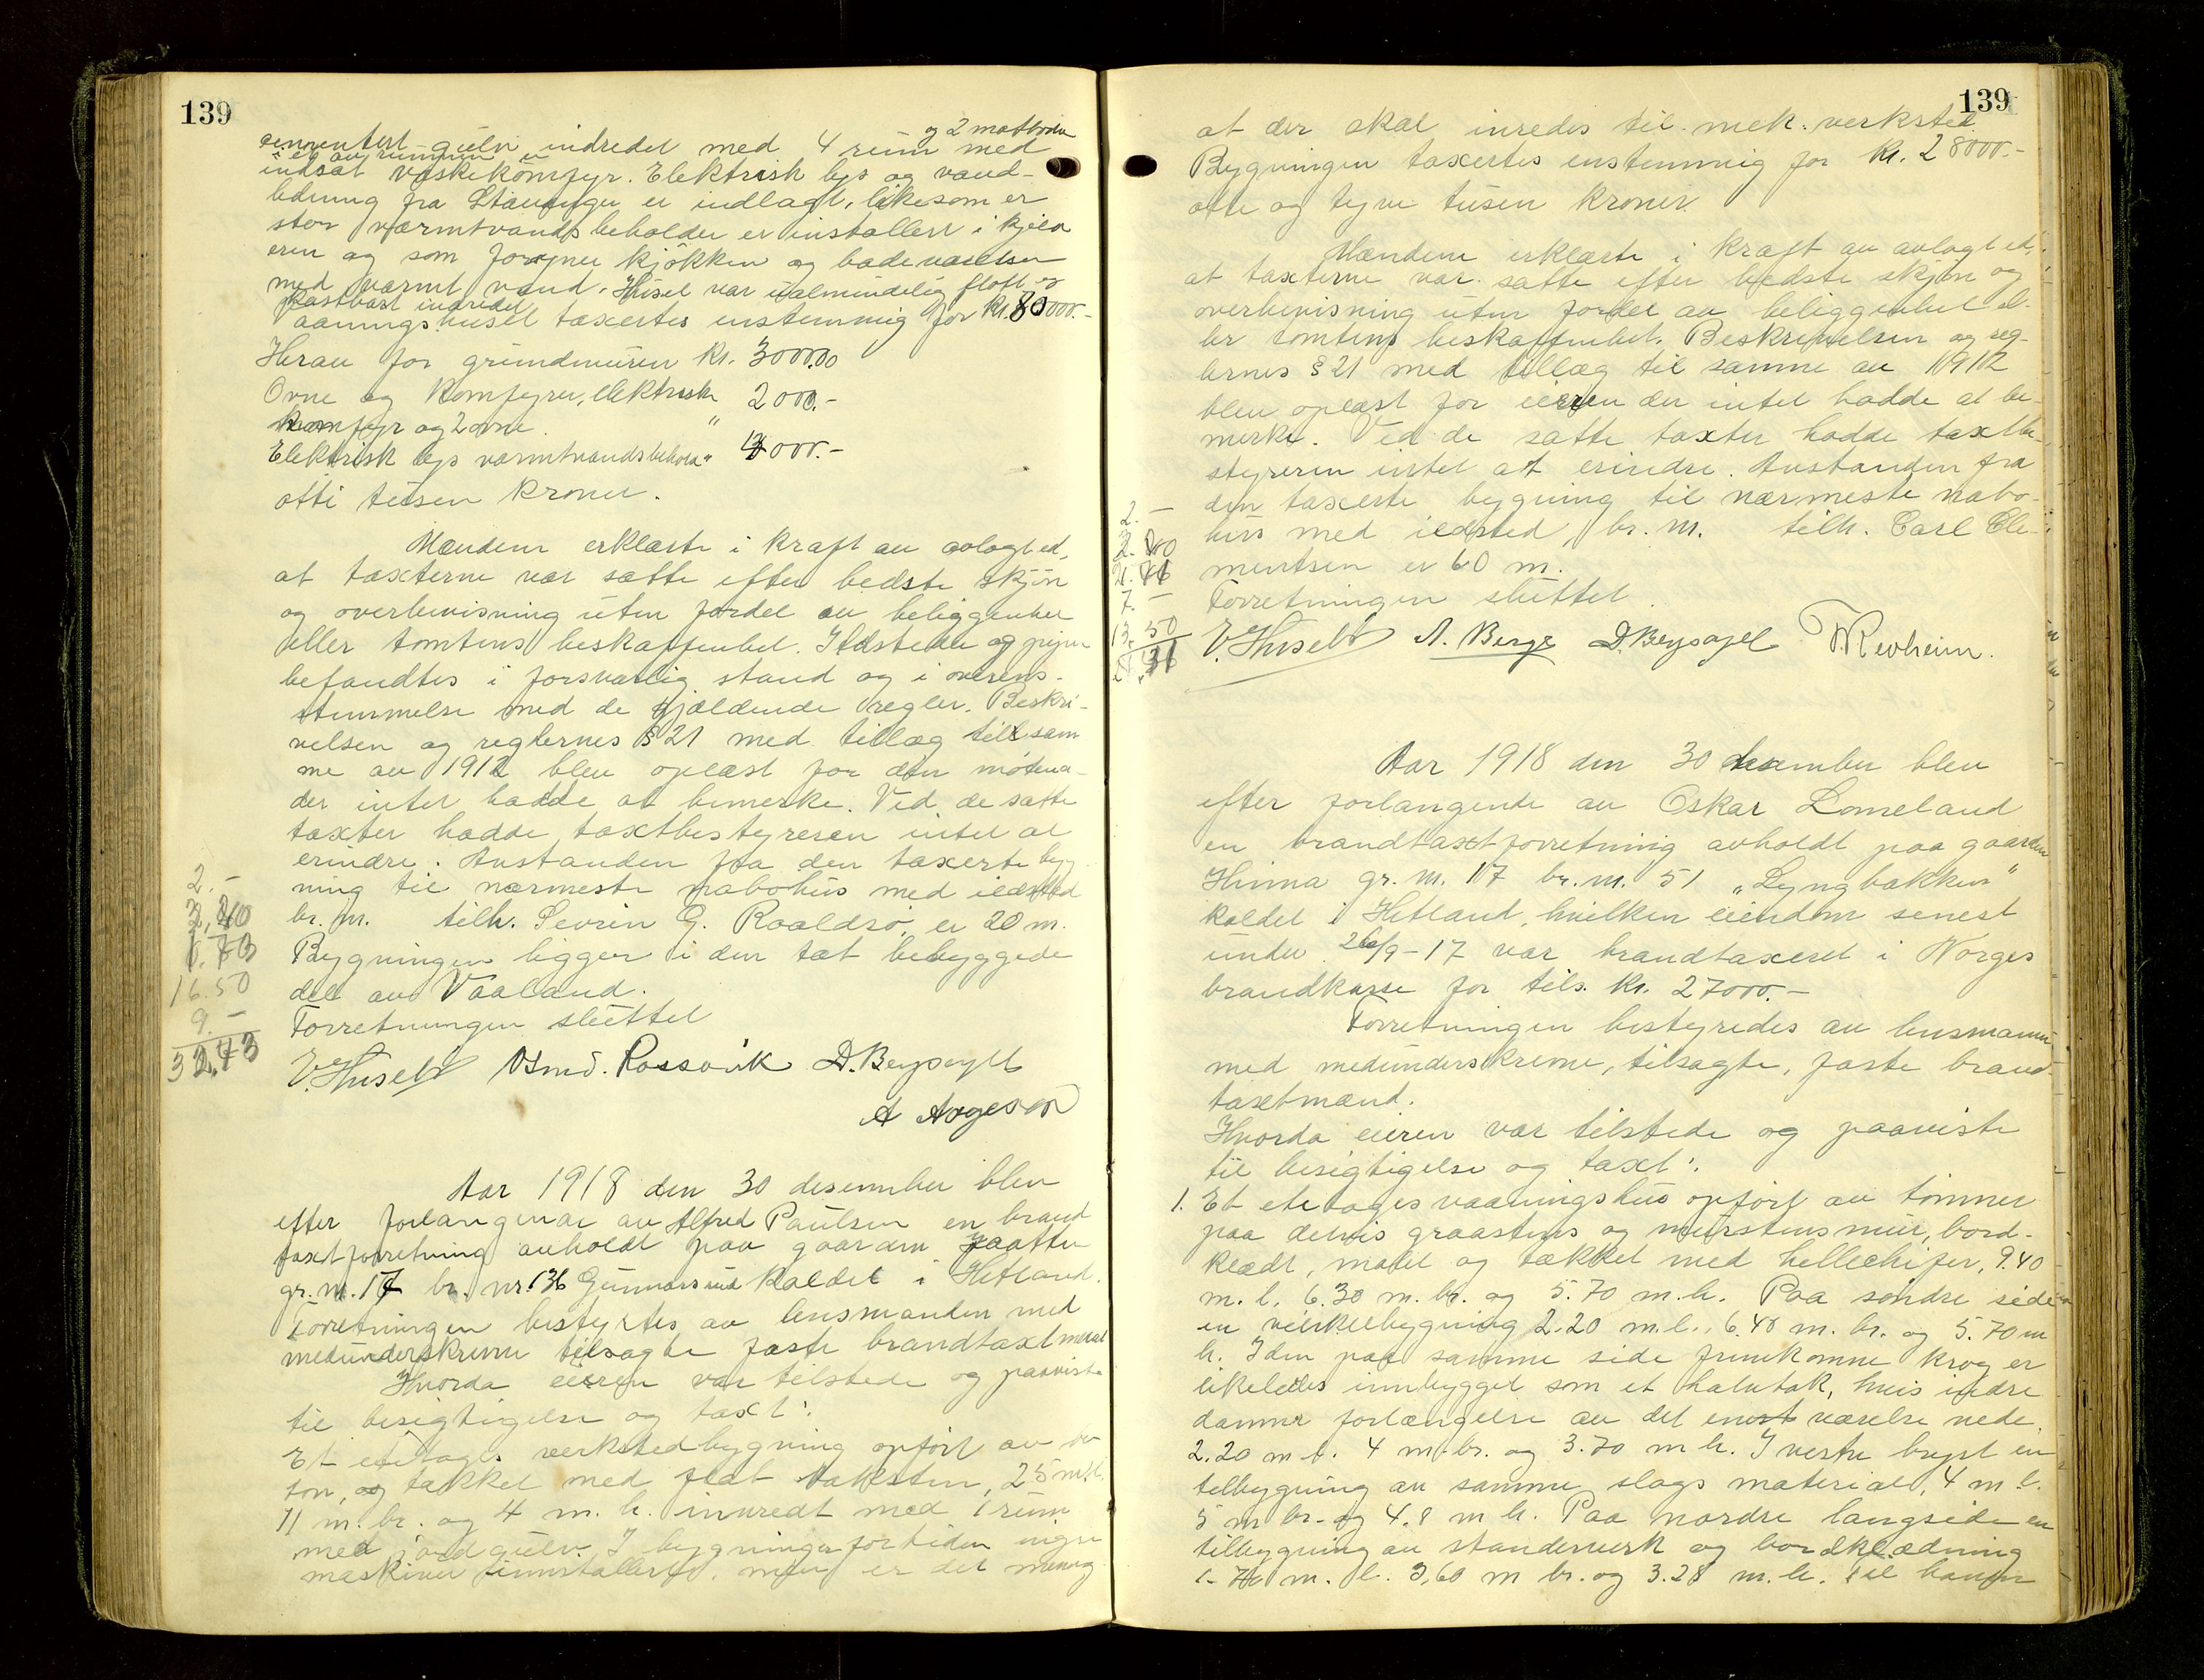 139
og 2 matboder
cementert gulv indredet med 4 rum med
i et av rummen er
indsat vaskekomfyr. Elektrisk lys og vand-
ledning fra Stavanger er indlagt, likesom er
stor varmtvandsbeholder er installert i kjeld
eren og som forsyner kjøkken og badeværelsen
med varmt vand. Huset var ualmindelig flott og
kostbart indredet
aaningshuset taxertes enstemmig for kr. 80000.-
Herav for grundmuren kr. 3000.00
Ovne og komfyrer, elektrisk " 2000.-
komfyr og 2 ovne
Elektrisk lys varmtvandsbehold " 3000.-
otti tusen kroner.
Mændene erklærte i kraft av avlagt ed,
at taxterne var satte efter bedste skjøn
og overbevisning uten fordel av beliggenhet
eller tomtens beskaffenhet. Ildstedene og piper
befandtes i forsvarlig stand og i overens-
stemmelse med de gjældende regler. Beskri-
velsen og reglernes § 21 med tillæg til sam
me av 1912 blev oplæst for den møtena-
der intet hadde at bemerke. Ved de satte
taxter hadde taxtbestyreren intet at
erindre. Avstanden fra den taxerte byg
ning til nærmeste nabohus med ildsted
br. nr. tilh. Sevrin G. Roaldsø, er 20 m.
Bygningen ligger i den tæt bebyggede
del av Vaaland.
Forretningen sluttet
2.-
16.50
9.-
32.43
V. Huseby Osmd. Rossavik D. Bersagel
A Aageson
Aar 1918 den 30 desember blev
efter forlangende av Alfred Paulsen en brand
taxtforretning avholdt paa gaarden Jaatten
gr. nr. 17 br. nr. 136 Gunnarsund kaldet i Hetland.
Forretningen bestyrtes av lensmanden med
medunderskrevne tilsagte faste brandtaxtmænd
Hvorda eieren var tilstede og paaviste
til besigtigelse og taxt:
Et etetages verkstedbygning opført av be
ton, og tækket med flat taksten, 25 m. l.
11 m. br. og 4 m. h. innredt med 1 rum
med jordgulv. I bygningen for tiden ingen
maskiner innstallert, men er det mening
139
at der skal inredes til mek. verksted.
Bygningen taxertes enstemmig for kr. 28000.-
otte og tyve tusen kroner.
Mændene erklærte i kraft av avlagt ed,
at taxterne var satte efter bedste skjøn og
overbevisning uten fordel av beliggenhet el-
ler tomtens beskaffenhet. Beskrivelsen og reg-
lernes § 21 med tillæg til samme av 1912
blev oplæst for eieren der intet hadde at be-
merke. Ved de satte taxter hadde taxtbe-
styreren intet at erindre. Avstanden fra
den taxerte bygning til nærmeste nabo-
hus med ildsted, br. nr. tilh. Carl Cle-
mentsen er 60 m.
Forretningen sluttet.
2.-
7.-
13.50
V. Huseby A. Berge D. Bersagel T. Revheim.
Aar 1918 den 30 desember blev
efter forlangende av Oskar Lomeland
en brandtaxtforretning avholdt paa gaarden
Hinna gr. nr. 17 br. nr. 51 "Lyngbakken"
kaldet i Hetland, hvilken eiendom senest
under 26/9-17 var brandtaxeret i Norges
brandkasse for tils. kr. 27000.-
Forretningen bestyredes av lensmannen
med medunderskrevne, tilsagte, faste brand-
taxtmænd.
Hvorda eieren var tilstede og paaviste
til besigtigelse og taxt:
1. Et etetages vaaningshus opført av tømmer
paa delvis graastens og murstensmur, bord-
klædt, malet og tækket med helleskifer, 9.40
m. l. 6.30 m. br. og 5.70 m. h. Paa søndre side
en vinkelbygning 2.20 m. l., 6.48 m. br. og 5.70 m
h. I den paa samme side fremkomne krog er
likeledes innbygget som et halvtak, hvis indre
danner forlængelse av det enest værelse nede,
2.20 m. l. 4 m. br. og 3.70 m h. I vestre bryst en
tilbygning av samme slags material, 4 m l.
5 m br. og 4.8 m h. Paa nordre langside en
tilbygning av standerverk og bordklædning
1.70 m. l. 3,60 m br. og 3.28 m. h. Til haugen